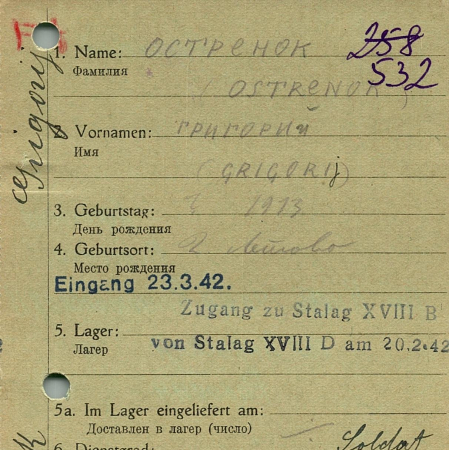 258
1. Name: ОСТРЕНОК
Фамилия
532
(OSTRENOK)
Grigorij
Vornamen: ГРИГОРИЙ
Имя
(GRIGORIJ)
3. Geburtstag: 1913
День рождения
4. Geburtsort:
Место рождения
Eingang 23.3.42.
Zugang zu Stalag XVIII B
5. Lager: von Stalag XVIII D am 20.2.42
Лагер
5a. Im Lager eingeliefert am:
Доставлен в лагер (число)
6. Dienstgrad: Soldat